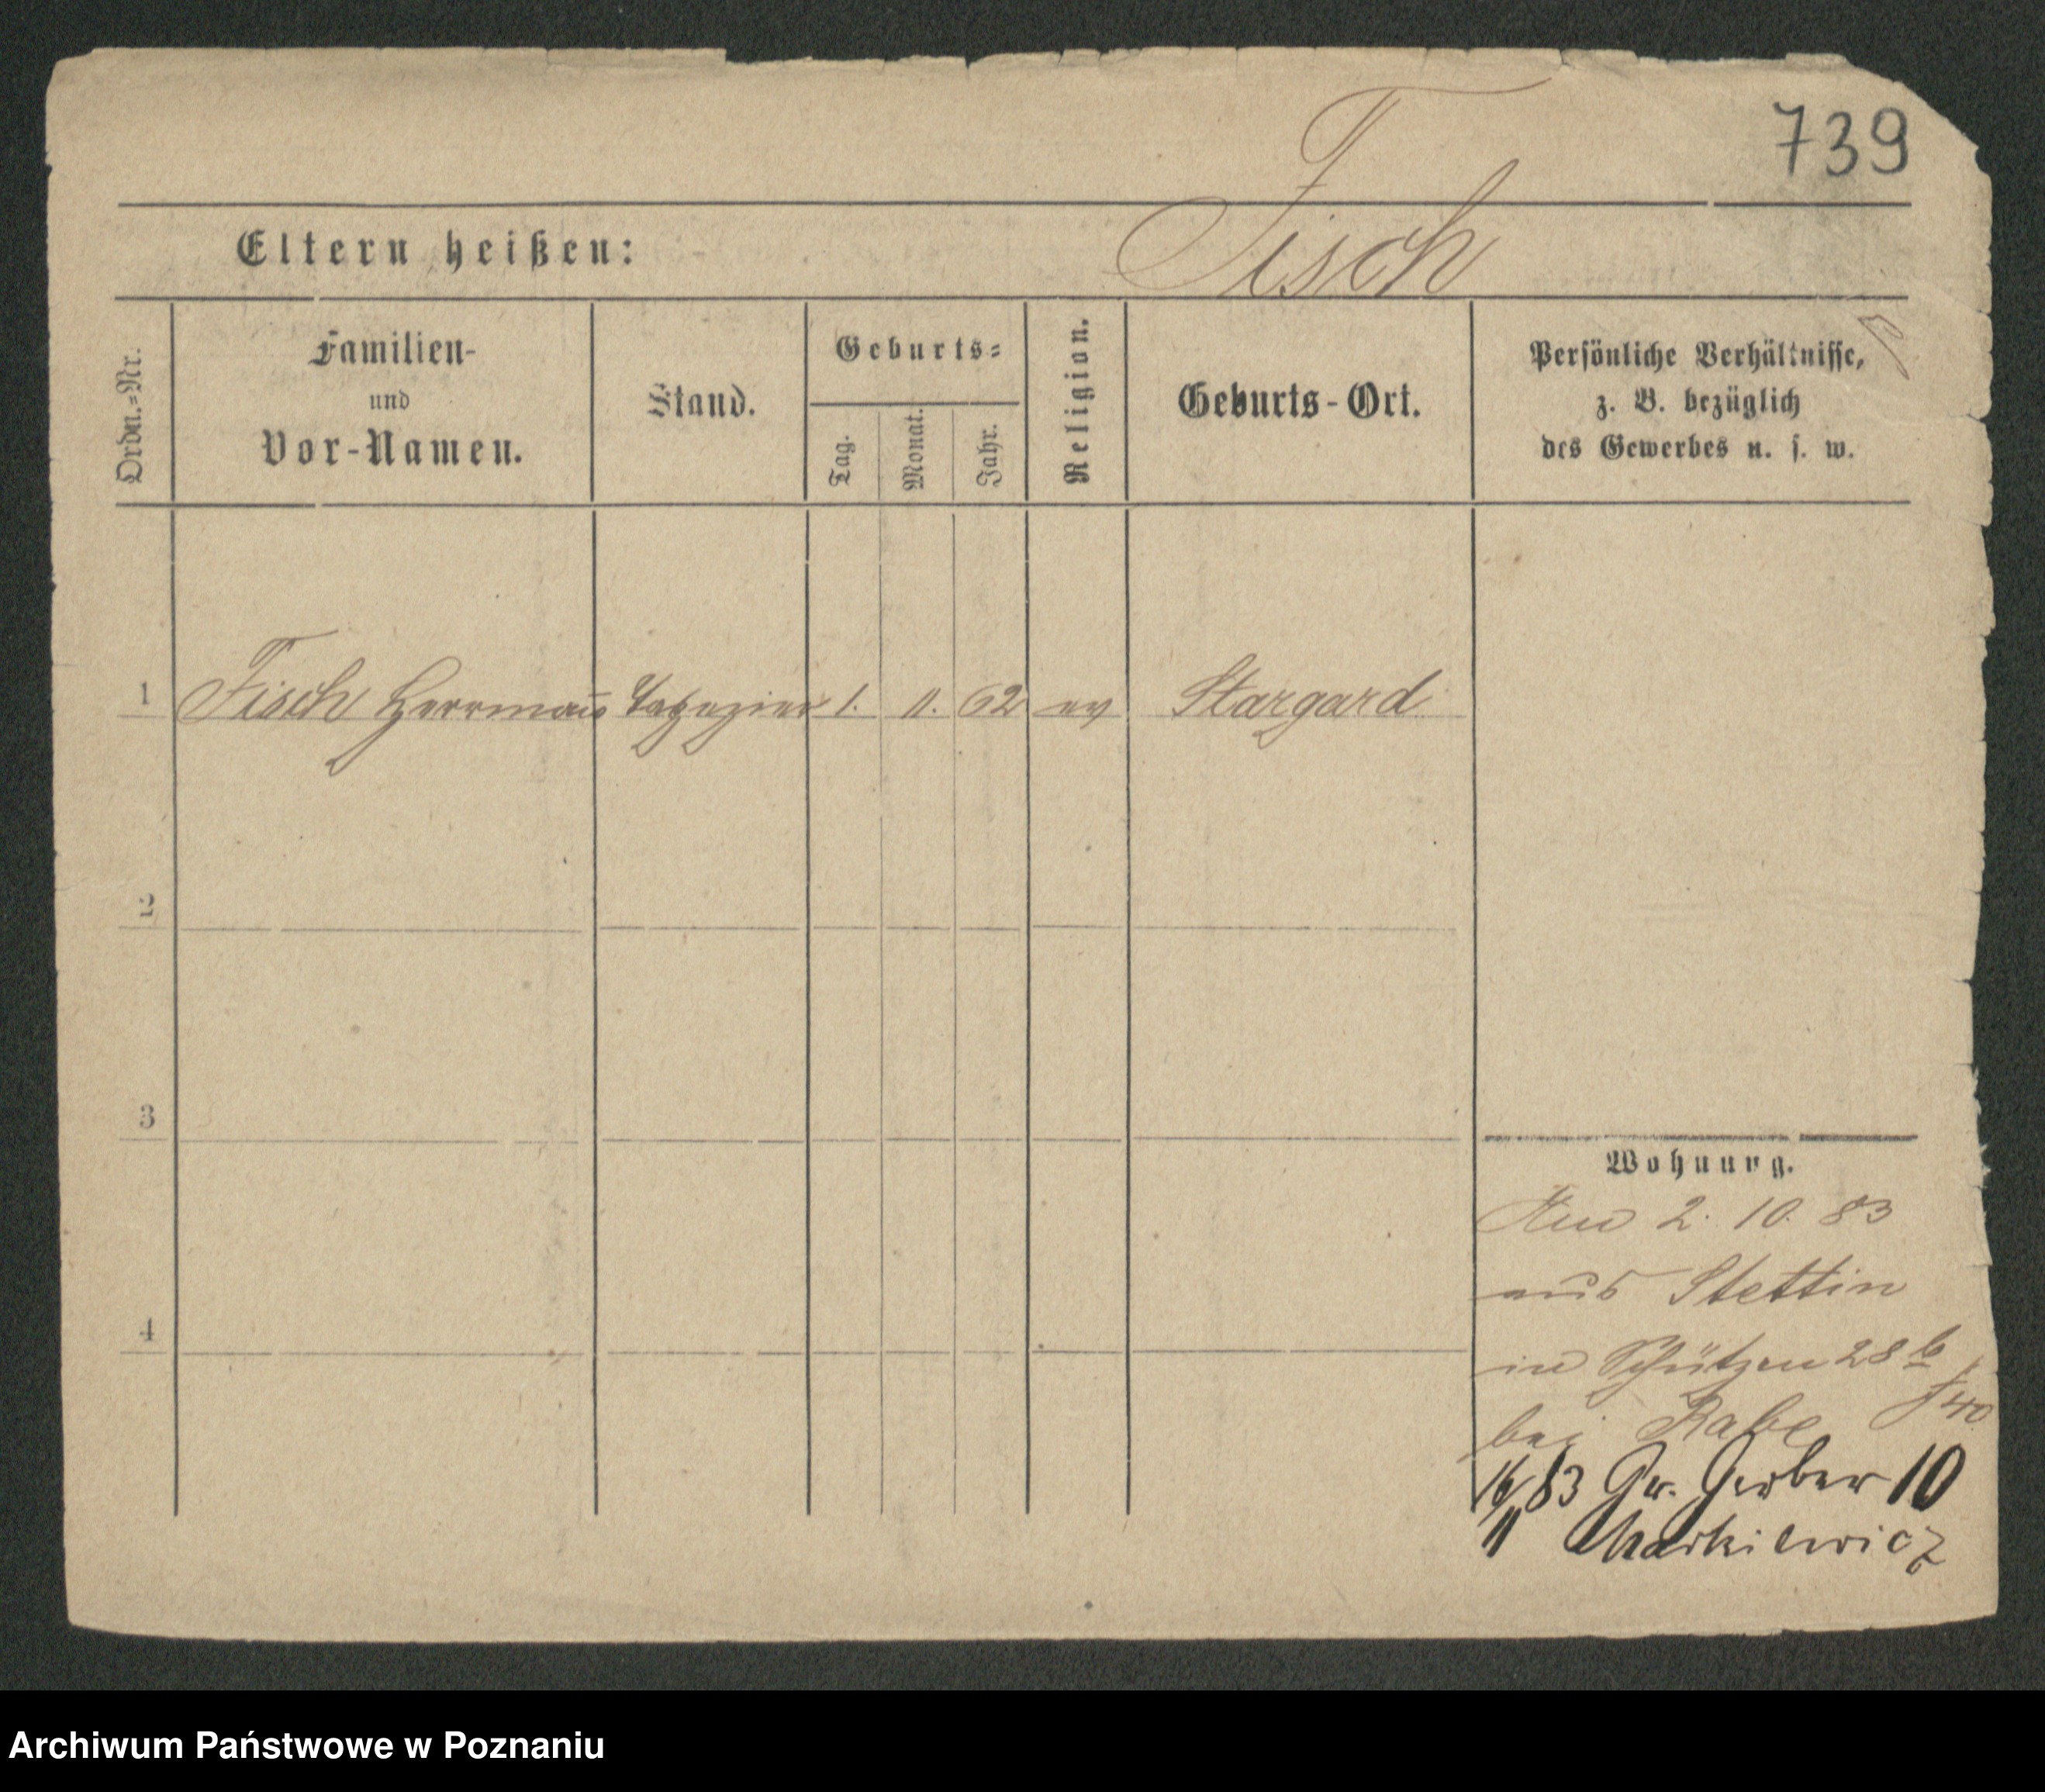 739
Fisch
Eltern heißen:
Ordn.=Nr.
Familien-
und
Vor-Namen.
Stand.
Geburts=
Tag.
Monat.
Jahr.
Religion.
Geburts-Ort.
Persönliche Verhältnisse,
z. B. bezüglich
des Gewerbes u. s. w.
1 Fisch Herrmann Tapezier 1. 11. 62 ev Stargard
2
3
4
Wohnung.
2. 10. 83
aus Stettin
in Schützen 28 b
bei Rabe
16/11 83 Gr. Gerber 10
Markiewicz
Archiwum Państwowe w Poznaniu